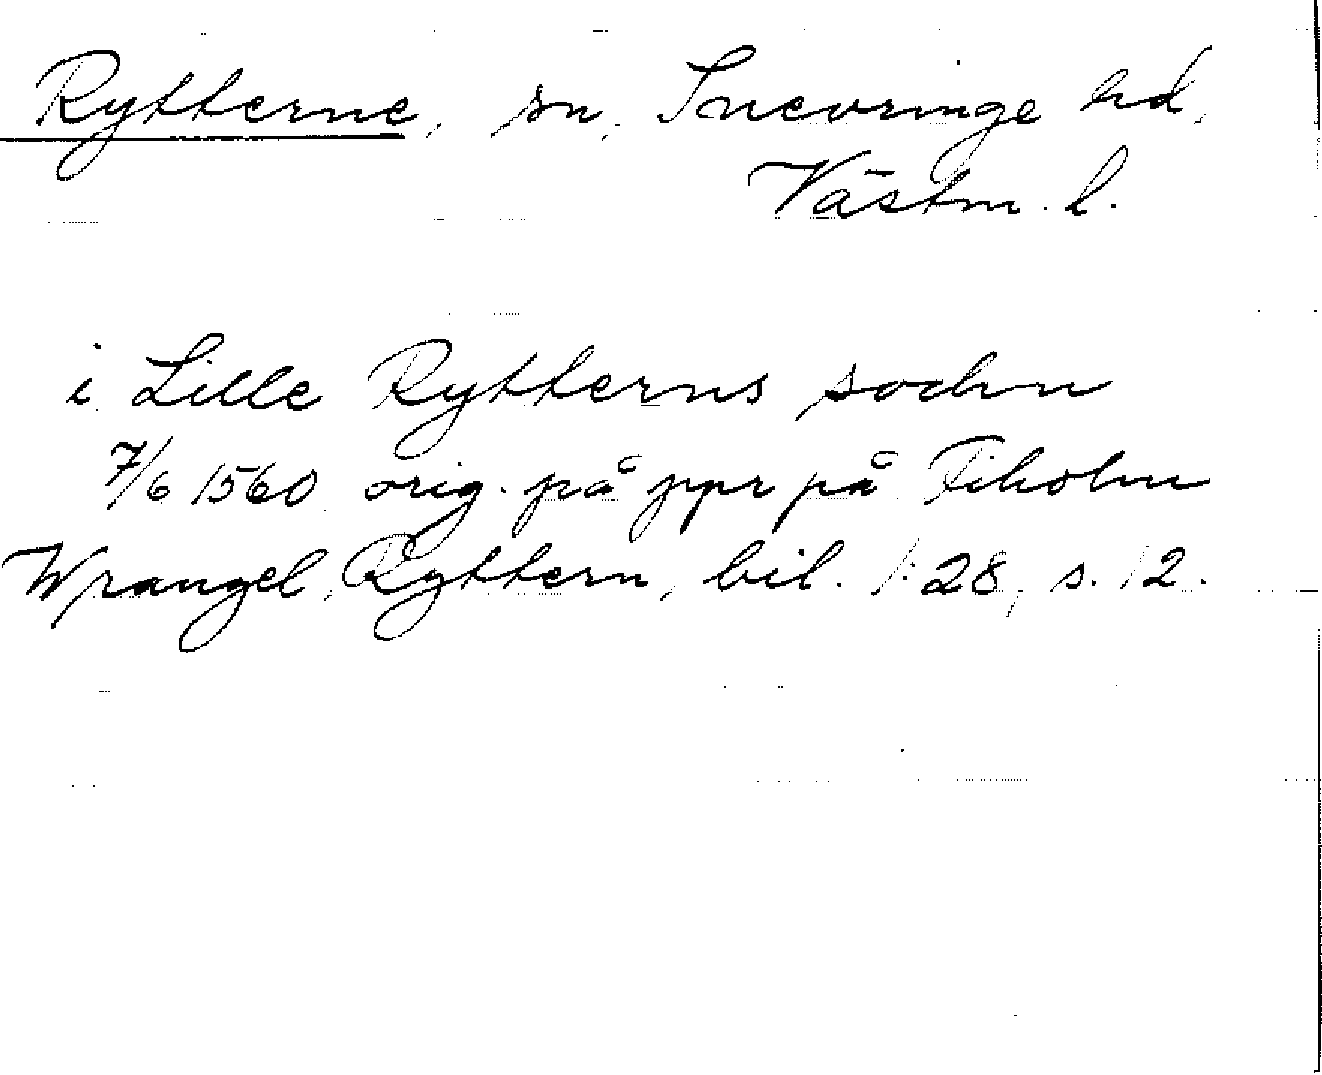 Rytterne, sn, Snevringe hd,
Västm. l.
i Lille Rytterns sochn
7/6 1560 orig. på ppr på Fiholm
Wrangel, Ryttern, bil. 1:28, s. 12.